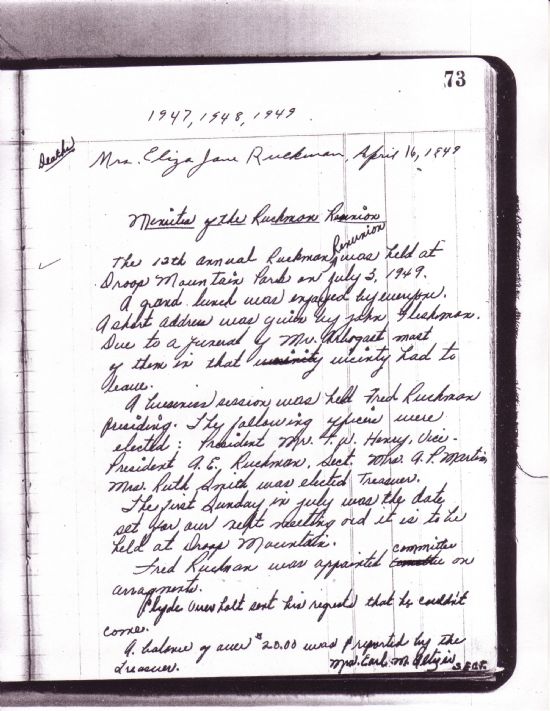 73
1947, 1948, 1949
Deaths
Mrs. Eliza Jane Ruckman, April 16, 1949
Minutes of the Ruckman Reunion
The 12th annual Ruckman Reunion was held at
Droop Mountain Park on July 3, 1949.
A grand lunch was enjoyed by everyone.
A short address was given by John Fleshman.
Due to a funeral of Mr. Arbogast most
of them in that vicinty had to
leave.
A business session was held Fred Ruckman
presiding. The following officers were
elected: President Mr. F.W. Henry, Vice-
President A.E. Ruckman, Sect. Mrs. A.P. Martin
Mrs. Ruth Smith was elected Treasurer.
The first Sunday in July was the date
set for our next meeting and it is to be
held at Droop Mountain.
Fred Ruckman was appointed committee on
arragments.
Clyde Overholt sent his regrets that he couldn't
come.
A balance of over $20.00 was reported by the
treasurer.
Mrs. Earl M.